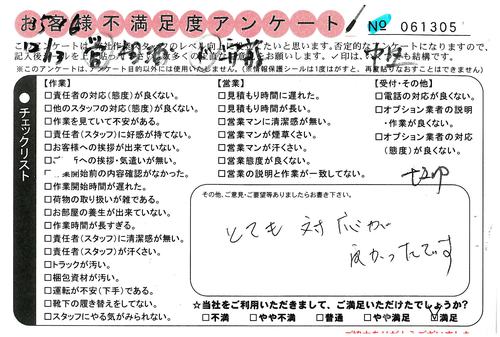 お客様不満足度アンケート
№ 061305
※このアンケートは、アンケート目的以外には使用いたしません。(※情報保護シールは1度はがすと、再度貼りなおすことはできません)
チェックリスト
【作業】
□責任者の対応(態度)が良くない。
□他のスタッフの対応(態度)が良くない。
□作業を見ていて不安がある。
□責任者(スタッフ)に好感が持てない。
□お客様への挨拶が出来ていない。
への挨拶・気遣いが無い。
業開始前の内容確認がなかった。
□作業開始時間が遅れた。
□荷物の取り扱いが雑である。
□お部屋の養生が出来ていない。
□作業時間が長すぎる。
□責任者(スタッフ)に清潔感が無い。
□責任者(スタッフ)が汗くさい。
□トラックが汚い。
□梱包資材が汚い。
□運転が不安(下手)である。
□靴下の履き替えをしてない。
□スタッフにやる気がみられない。
【営業】
□見積もり時間に遅れた。
□見積もり時間が長い。
□営業マンに清潔感が無い。
□営業マンが煙草くさい。
□営業マンが汗くさい。
□営業態度が良くない。
□営業の説明と作業が一致してない。
【受付・その他】
□電話の対応が良くない。
□オプション業者の説明
・作業が良くない。
□オプション業者の対応
(態度)が良くない。
その他、ご意見・ご要望等ありましたらお書き下さい。
とても 対応が
良かったです
☆当社をご利用いただきまして、ご満足いただけたでしょうか?
□不満 □やや不満 □普通 □やや満足 □満足